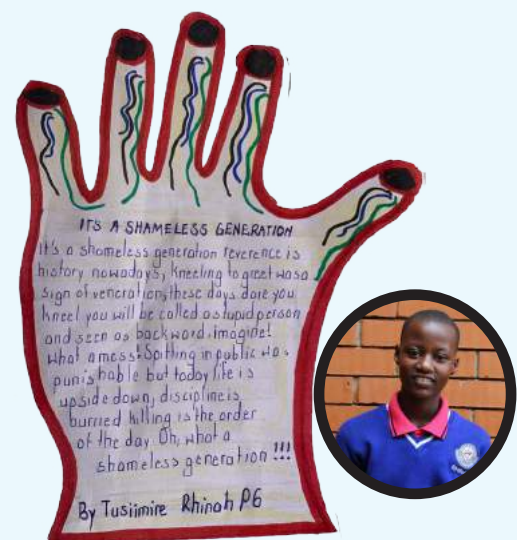 ITS A SHAMELESS GENERATION
It's a shameless generation reverence is
history nowadays, kneeling to greet was a
sign of veneration, these days dare you
kneel you will be called a stupid person
and seen as backword. imagine!
what a mess! Spitting in public was
punishable but today life is
upside down, discipline is
burried killing is the order
of the day. Oh, what a
shameless generation !!!
By Tusiimire Rhinah P6